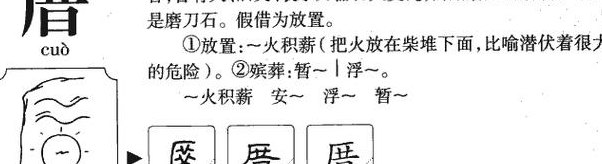 厝
cuò
是磨刀石。假借为放置。
①放置:～火积薪(把火放在柴堆下面,比喻潜伏着很大
的危险)。②殡葬:暂～｜浮～。
～火积薪　安～　浮～　暂～
厝 厝 厝